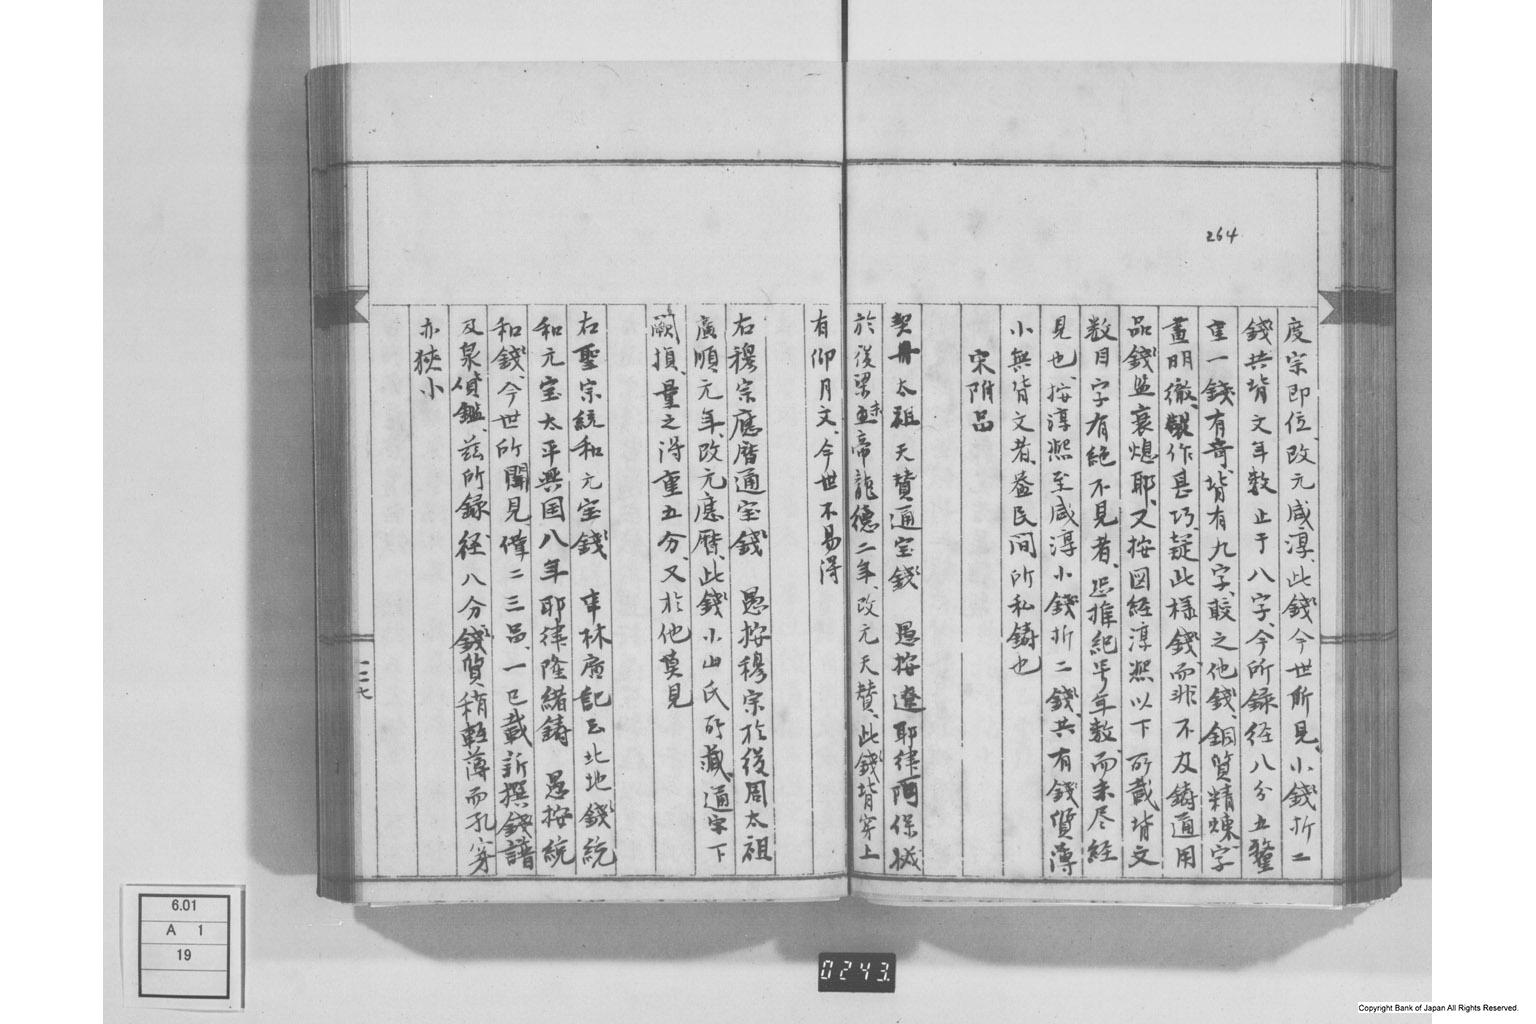 264
度宗即位、改元咸淳、此錢今世所見、小錢折二
錢共背文年数止于八字、今所録径八分五釐
重一錢有奇、背有九字、較之他錢、銅質精煉、字
畫明徹、製作甚巧、疑此様錢而非不及鋳通用
品、錢監衰熄耶、又按図経淳熙以下所載背文
数目字有絶不見者、恐推紀号年数、而未尽経
見也、按淳熙至咸淳小錢折二錢、共有錢質薄
小無背文者、益民間所私鋳也
宋附品
契丹太祖天賛通宝錢 愚按遼耶律阿保機
於後梁末帝龍徳二年、改元天賛、此錢背穿上
有仰月文、今世不易得
右穆宗應暦通宝錢 愚按穆宗於後周太祖
廣順元年、改元應暦、此錢小山氏所藏、通字下
闕損、量之得重五分、又於他莫見
右聖宗統和元宝錢 事林廣記云北地錢統
和元宝太平興国八年耶律隆緒鋳 愚按統
和錢、今世所聞見、僅二三品、一已載新撰錢譜
及泉貨鑑、茲所録径八分錢質稍軽薄而孔穿
亦狭小
二七
6.01
A 1
19
0243.
Copyright Bank of Japan All Rights Reserved.